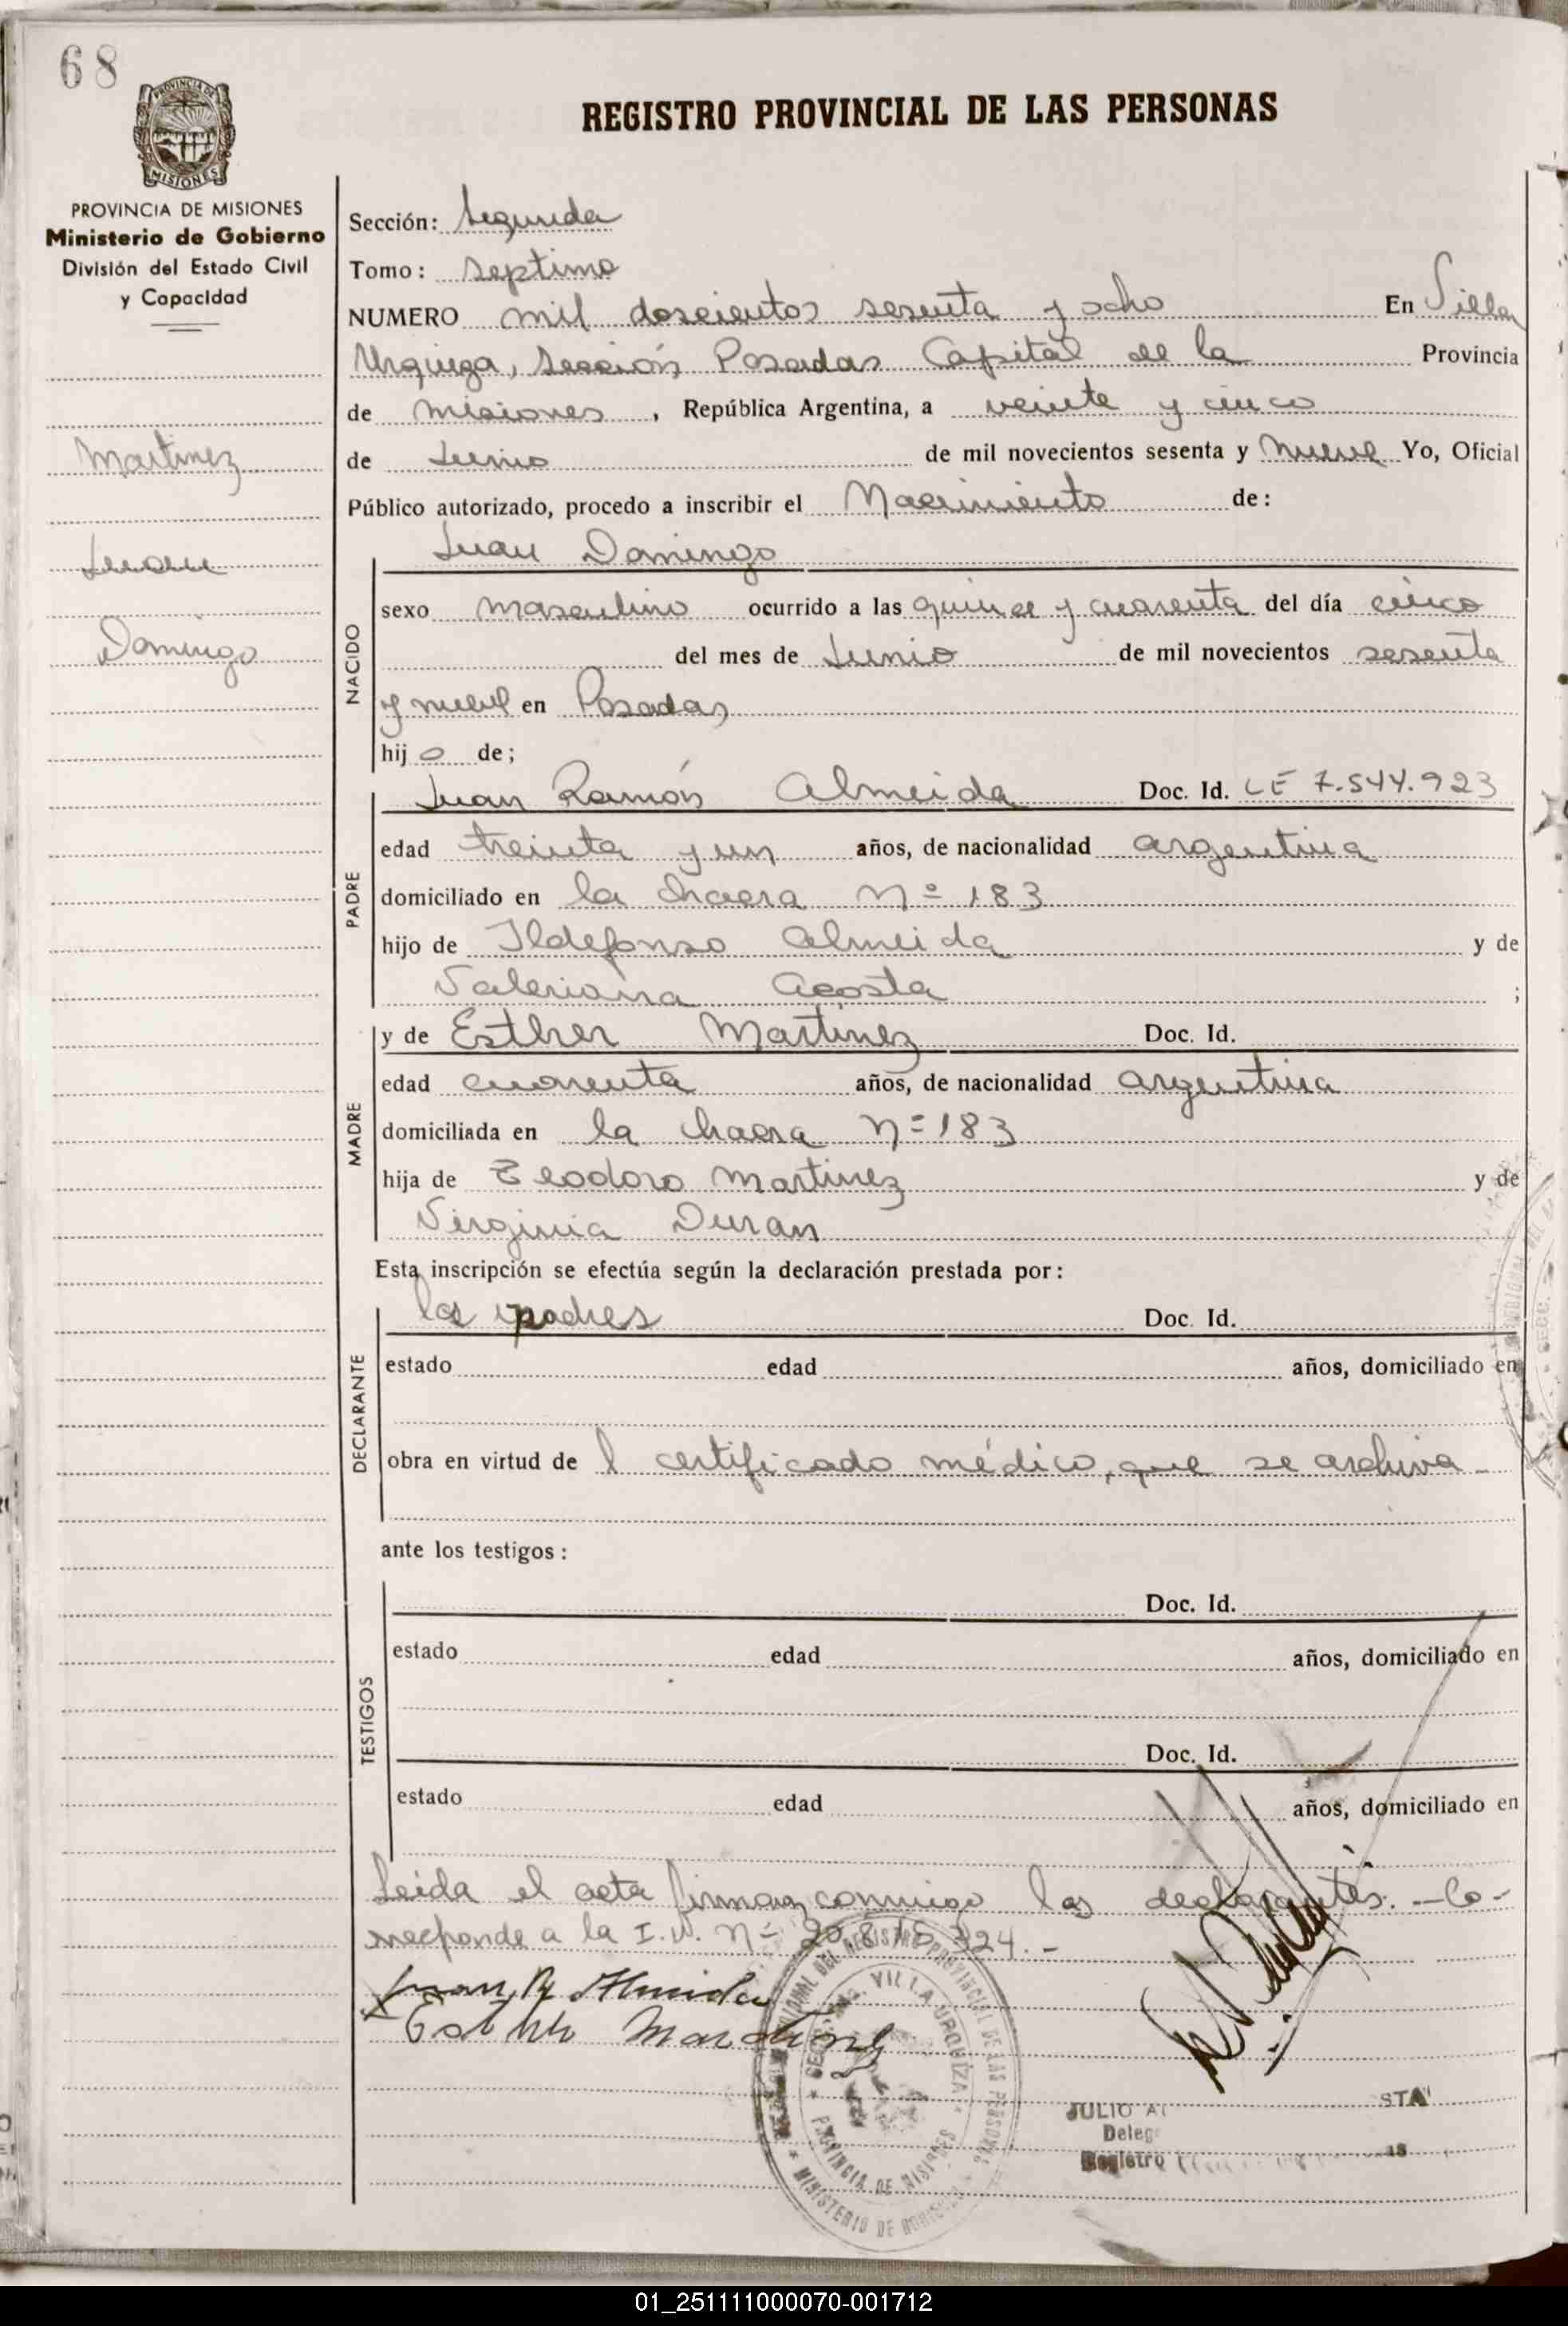 68
PROVINCIA DE MISIONES
REGISTRO PROVINCIAL DE LAS PERSONAS
PROVINCIA DE MISIONES
Ministerio de Gobierno
División del Estado Civil
y Capacidad
Sección: Segunda
Tomo: Septimo
NUMERO mil doscientos sesenta y ocho En Villa
Urquiza, Sección Posadas Capital de la Provincia
de Misiones, República Argentina, a veinte y cinco
Martinez
de Junio de mil novecientos sesenta y nueve Yo, Oficial
Público autorizado, procedo a inscribir el Nacimiento de:
Juan
Domingo
Juan Domingo
NACIDO
sexo masculino ocurrido a las quince y cuarenta del día cinco
del mes de Junio de mil novecientos sesenta
y nueve en Posadas
hijo de;
PADRE
Juan Ramón Almeida Doc. Id. LE 7.544.923
edad treinta y un años, de nacionalidad argentina
domiciliado en la chacra Nº 183
hijo de Ildefonso Almeida y de
Valeriana Acosta ;
MADRE
y de Esther Martinez Doc. Id.
edad cuarenta años, de nacionalidad argentina
domiciliada en la chacra Nº 183
hija de Teodoro Martinez y de
Virginia Duran
Esta inscripción se efectúa según la declaración prestada por:
DECLARANTE
los padres Doc. Id.
estado edad años, domiciliado en
obra en virtud de l certificado médico, que se archiva
ante los testigos:
TESTIGOS
Doc. Id.
estado edad años, domiciliado en
Doc. Id.
estado edad años, domiciliado en
Leida el acta firman conmigo los declarantes. - Co-
rresponde a la I.N. Nº 20.815.324. -
Juan R Almeida
Esther Martinez
VILLA URQUIZA
PROVINCIA DE MISIONES
MINISTERIO DE
JULIO STA
Registro
01_251111000070-001712